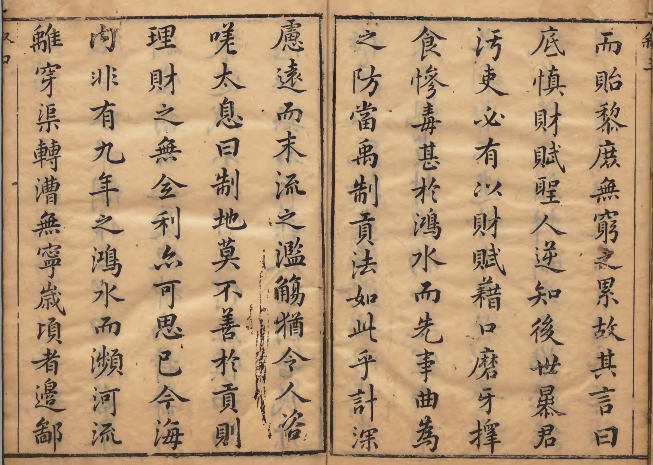 而貽黎庶無窮之累故其言曰
底慎財賦聖人逆知後世暴君
污吏必有以財賦藉口磨牙擇
食慘毒甚於鴻水而先事曲為
之防當禹制貢法如此乎計深
慮遠而末流之濫觴猶令人咨
嗟太息曰制地莫不善於貢則
理財之無全利亦可思已今海
內非有九年之鴻水而瀕河流
離穿渠轉漕無寧歲項者邊鄙